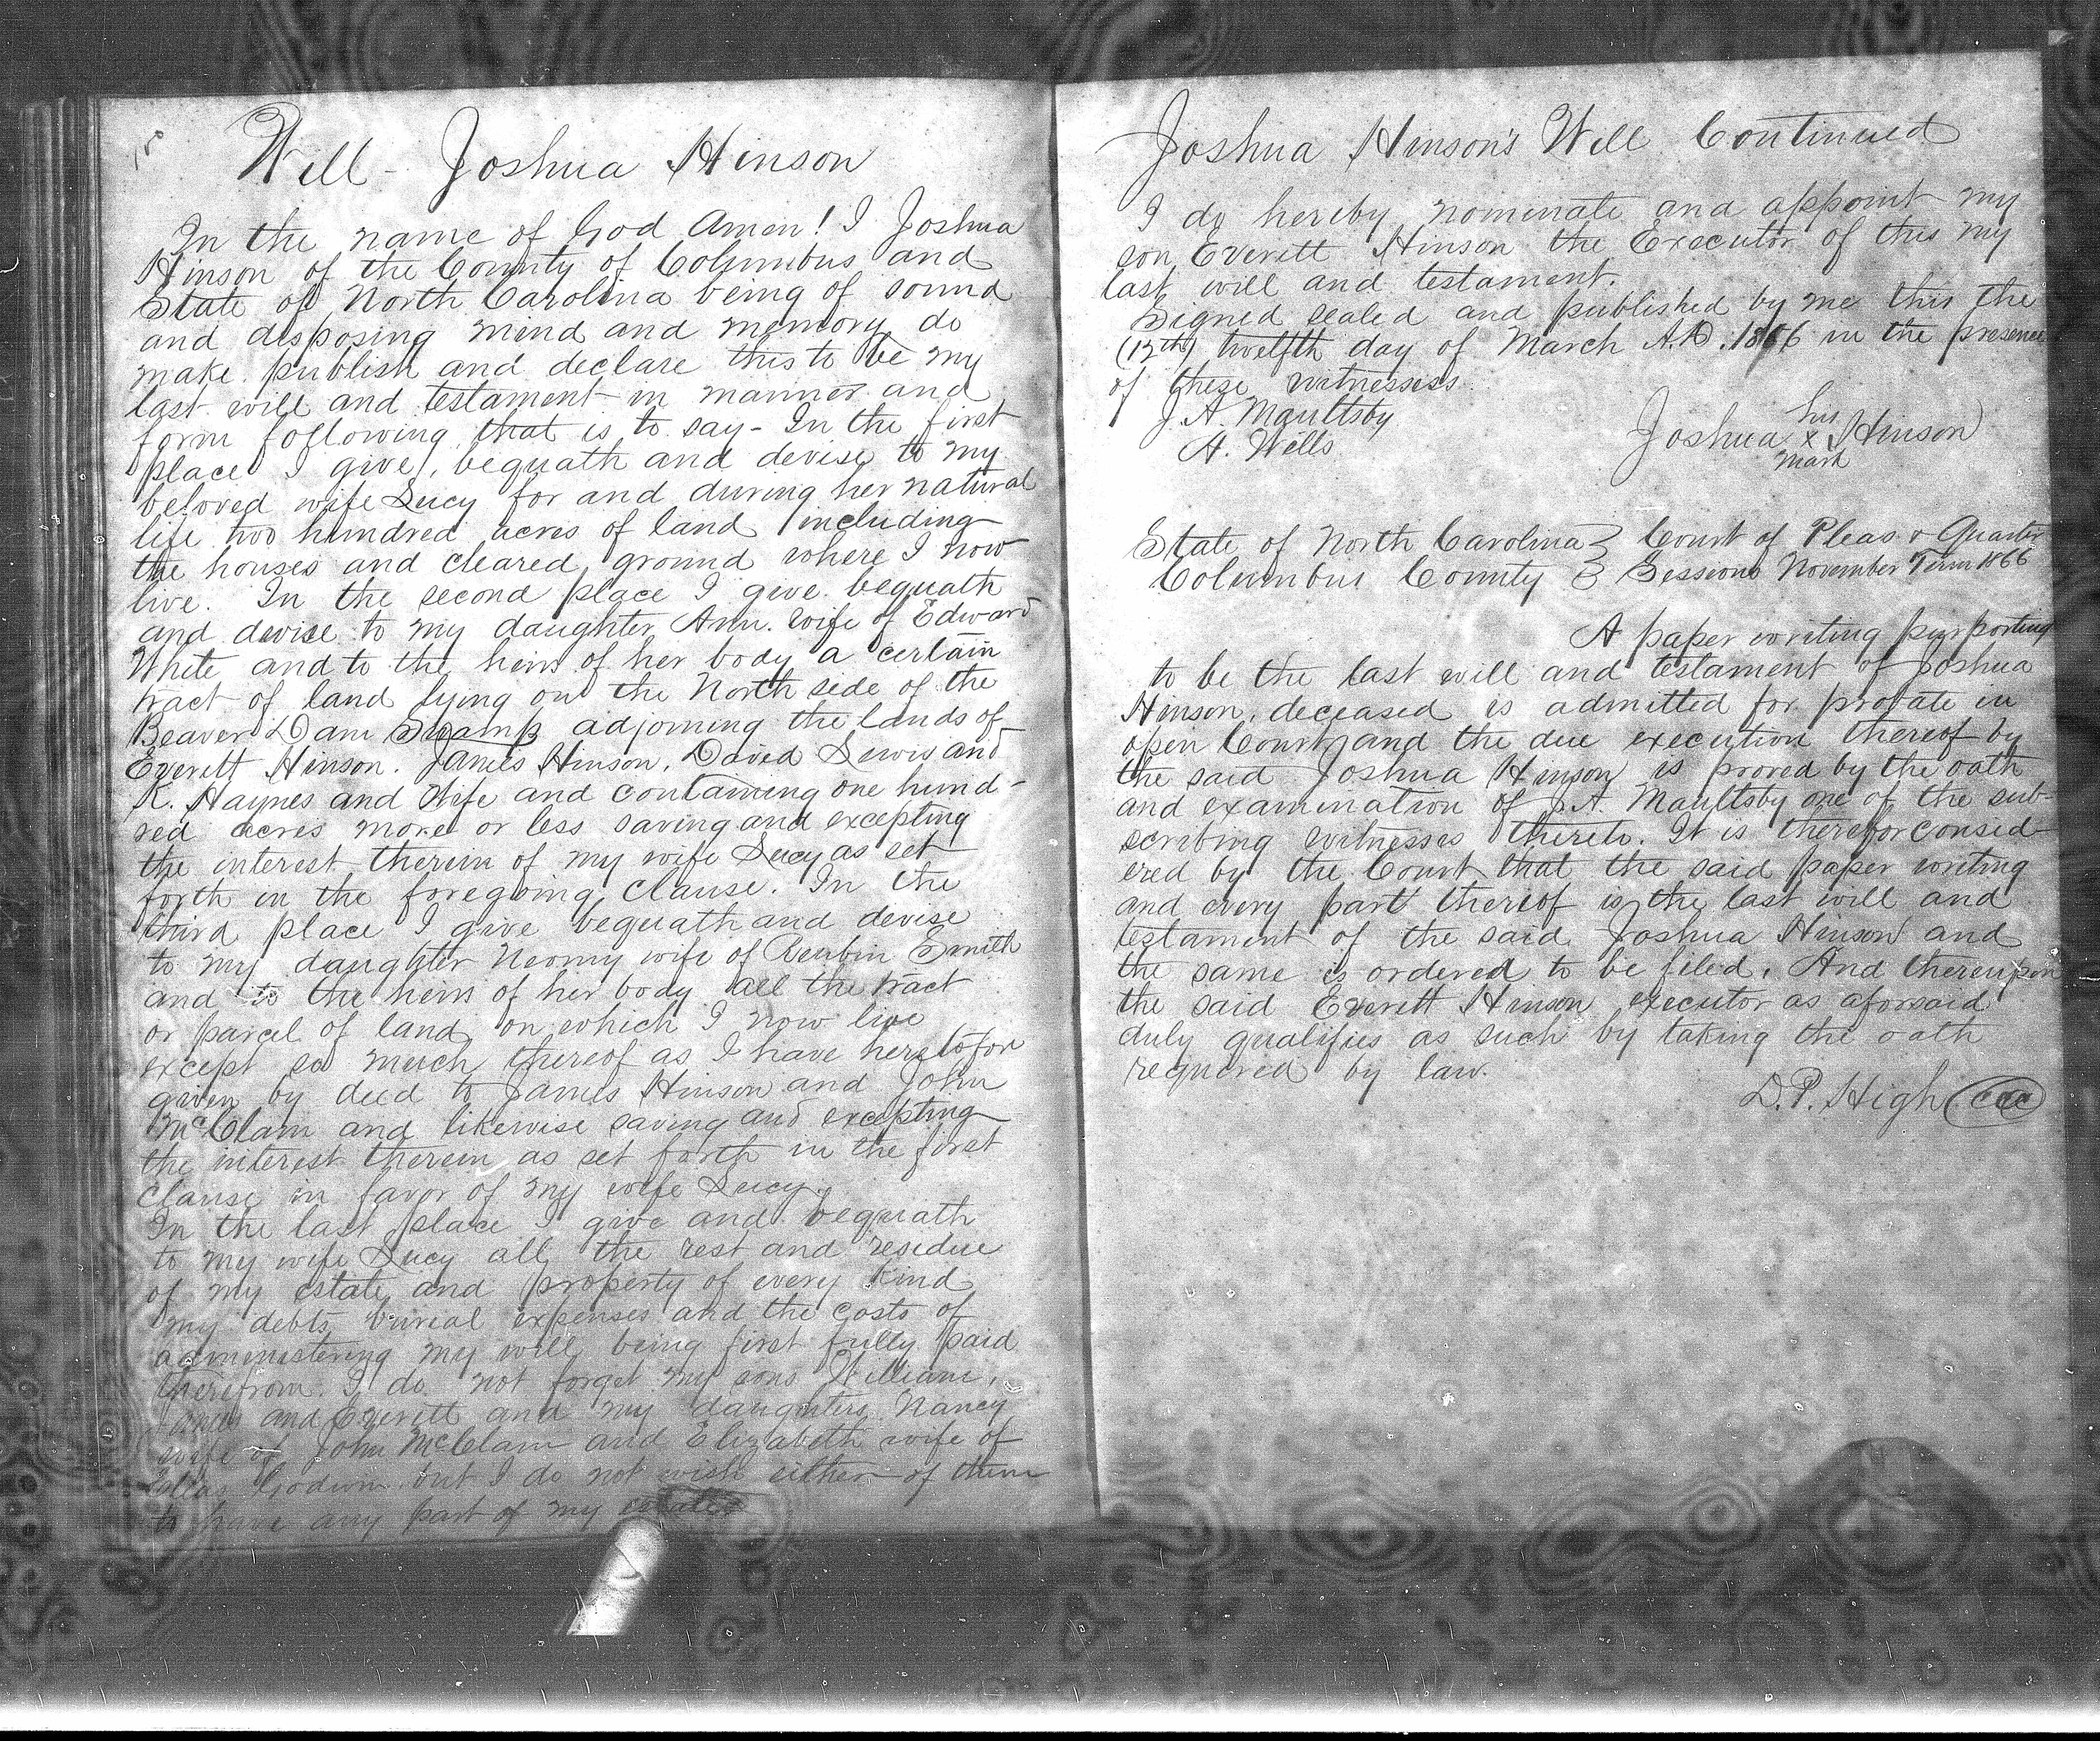 Will - Joshua Hinson
In the name of God Amen! I Joshua
Hinson of the County of Columbus and
State of North Carolina being of sound
and disposing mind and memory do
make publish and declare this to be my
last will and testament in manner and
form following, that is to say - In the first
place I give, bequath and devise to my
beloved wife Lucy for and during her natural
life two hundred acres of land including
the houses and cleared ground where I now
live. In the second place I give bequath
and devise to my daughter Ann. wife of Edward
White and to the heirs of her body a certain
tract of land lying on the North side of the
Beaver Dam Swamp adjoining the lands of
Everett Hinson. James Hinson, David Lewis and
K. Haynes and Wife and containing one hund-
red acres more or less saving and excepting
the interest therein of my wife Lucy as set
forth in the foregoing clause. In the
third place I give bequath and devise
to my daughter Neomy wife of Reubin Smith
and to the heirs of her body all the tract
or parcel of land on which I now live
except so much thereof as I have heretofor
given by deed to James Hinson and John
McClam and likewise saving and excepting
the interest therein as set forth in the first
clause in favor of my wife Lucy.
In the last place I give and bequath
to my wife Lucy all the rest and residue
of my estate and property of every kind
my debts, burial expenses and the costs of
administering my will being first fully paid
therefrom. I do not forget my sons William,
James and Everett and my daughters Nancy
wife of John McClam and Elizabeth wife of
Godwin but I do not wish either of them
to have any part of my estate
Joshua Hinson's Will Continued
I do hereby nominate and appoint my
son Everett Hinson the Executor of this my
last will and testament.
Signed sealed and published by me this the
(12th) twelfth day of March A.D. 1866 in the presence
of these witnessess
J. A. Maultsby
H. Wells
his
Joshua x Hinson
mark
State of North Carolina } Court of Pleas & Quarter
Columbus County } Sessions November Term 1866
A paper writing purporting
to be the last will and testament of Joshua
Hinson, deceased is admitted for probate in
open Court and the due execution thereof by
the said Joshua Hinson is proved by the oath
and examination of J. A. Maultsby one of the sub-
scribing witnesses thereto. It is therefor consid-
ered by the Court that the said paper writing
and every part thereof is the last will and
testament of the said Joshua Hinson and
the same is ordered to be filed. And thereupon
the said Everett Hinson executor as aforsaid
duly qualifies as such by taking the oath
required by law.
D. P. High ccc